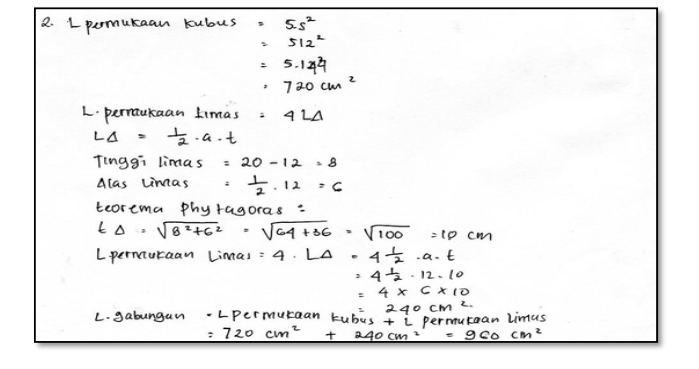 2. L permukaan kubus = 5s²
= 512²
= 5.144
= 720 cm²
L. permukaan Limas = 4 LΔ
LΔ = 1/2 . a . t
Tinggi limas = 20 - 12 = 8
Alas Limas = 1/2 . 12 = 6
teorema phytagoras =
t Δ = √8²+6² = √64+36 = √100 = 10 cm
L permukaan Limas = 4 . LΔ = 4 1/2 . a . t
= 4 1/2 . 12 . 10
= 4 x 6 x 10
= 240 cm²
L. gabungan = L permukaan kubus + L permukaan limas
= 720 cm² + 240 cm² = 960 cm²